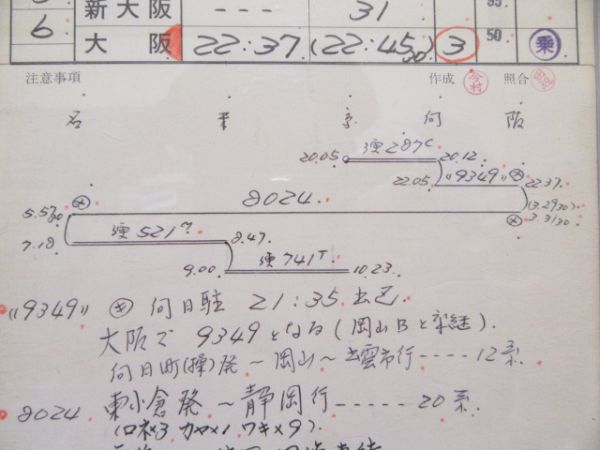 新大阪 --- 31 95
6 大阪 22:37 (22:45 50) 3 50 乗
注意事項 作成 照合
名 米 京 向 阪
20.05 287C 20.12
22.05 《9349》 22.37
5.57 8024 (3.29 30)
3.31 30
7.18 521M 8.47
9.00 741T 10.23
《9349》 向日駐 21:35 出区
大阪で 9349 となる (岡山Bと乗継).
向日町(操)発 ~ 岡山 ~ 出雲市行 ---- 12系
8024 東小倉発 ~ 静岡行 ------ 20系
(ロネ×3 カヤ×1 ワキ×9).